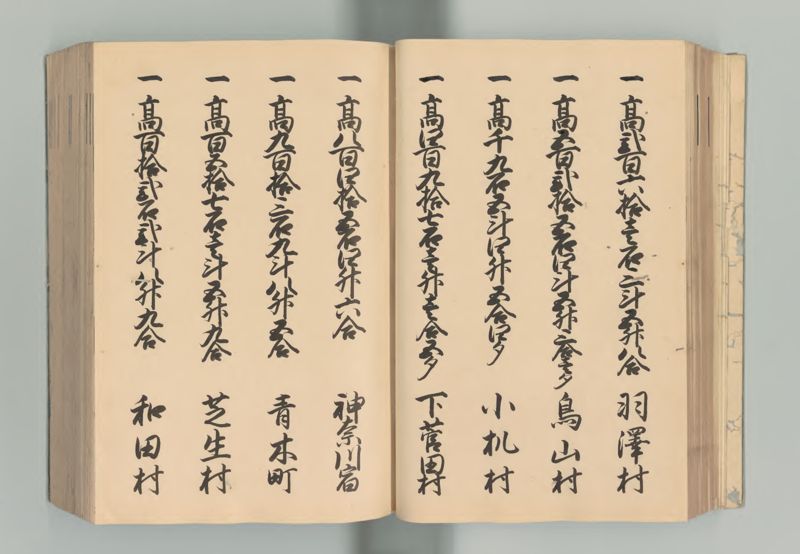 一 高弐百六拾壱石三斗五升八合 羽澤村
一 高五百弐拾五石四斗五升三合壱夕 鳥山村
一 高千九石五斗四升五合四夕 小机村
一 高四百九拾七石壱升壱合五夕 下菅田村
一 高八百四拾五石四升六合 神奈川宿
一 高九百拾三石九斗八升五合 青木町
一 高百五拾七石壱斗五升九合 芝生村
一 高百拾弐石弐斗八升九合 和田村